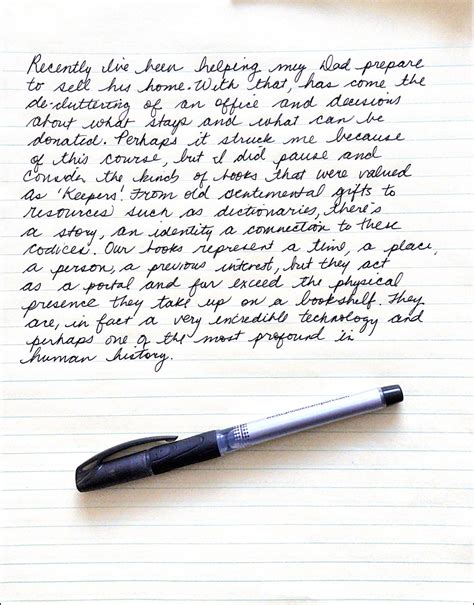 Recently I've been helping my Dad prepare
to sell his home. With that, has come the
de-cluttering of an office and decisions
about what stays and what can be
donated. Perhaps it struck me because
of this course, but I did pause and
consider the kinds of books that were valued
as 'Keepers'. From old sentimental gifts to
resources such as dictionaries, there's
a story, an identity a connection to these
codices. Our books represent a time, a place,
a person, a previous interest, but they act
as a portal and far exceed the physical
presence they take up on a bookshelf. They
are, in fact a very incredible technology and
perhaps one of the most profound in
human history.